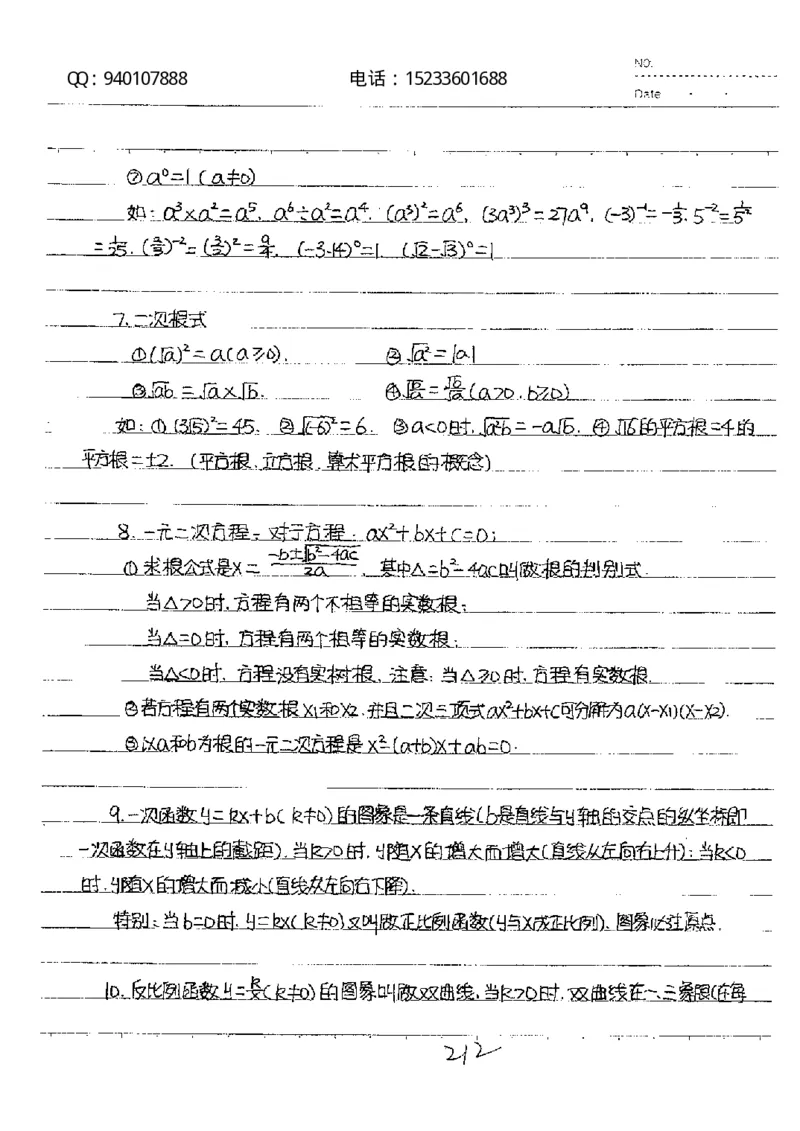 QQ：940107888 电话：15233601688 NO.
Date · ·
⑦a⁰=1（a≠0）
如：a³×a²=a⁵，a⁶÷a²=a⁴，(a³)²=a⁶，(3a³)³=27a⁹，(-3)⁻¹=-1/3，5⁻²=1/5²
=1/25，(2/3)⁻²=(3/2)²=9/4，(-3.14)⁰=1，(√2-√3)⁰=1
7.二次根式
①(√a)²=a(a≥0)， ②√a²=|a|
③√ab=√a×√b， ④√(b/a)=√b/√a(a>0，b≥0)
如：①(3√5)²=45，②√(-6)²=6，③a<0时，√a²b=-a√b，④√16的平方根=4的
平方根=±2．（平方根、立方根、算术平方根的概念）
8.一元二次方程，对于方程：ax²+bx+c=0；
①求根公式是x=(-b±√(b²-4ac))/2a，其中△=b²-4ac叫做根的判别式．
当△>0时，方程有两个不相等的实数根；
当△=0时，方程有两个相等的实数根；
当△<0时，方程没有实树根，注意：当△≥0时，方程有实数根．
②若方程有两个实数根x1和x2，并且二次三项式ax²+bx+c可分解为a(x-x1)(x-x2)．
③以a和b为根的一元二次方程是x²-(a+b)x+ab=0．
9.一次函数y=kx+b(k≠0)的图象是一条直线(b是直线与y轴的交点的纵坐标即
一次函数在y轴上的截距)，当k>0时，y随x的增大而增大(直线从左向右上升)；当k<0
时，y随x的增大而减小(直线从左向右下降)．
特别：当b=0时，y=kx(k≠0)又叫做正比例函数(y与x成正比例)，图象必过原点．
10.反比例函数y=k/x(k≠0)的图象叫做双曲线，当k>0时，双曲线在一、三象限(在每
212